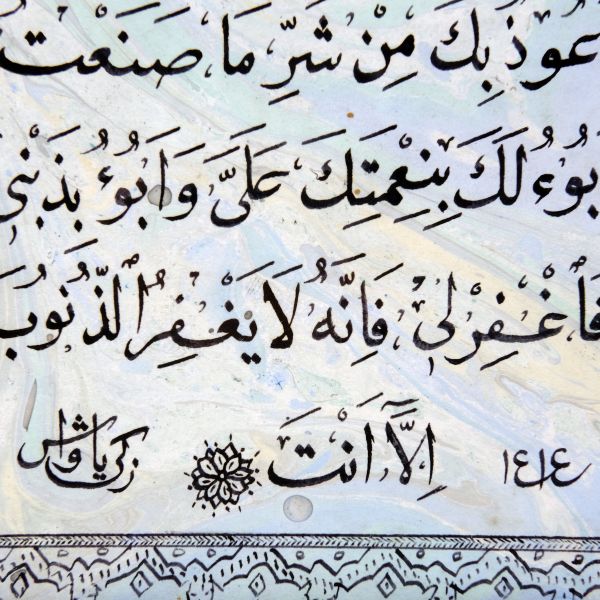 عُوذُ بِكَ مِنْ شَرِّ مَا صَنَعْتُ
بُوءُ لَكَ بِنِعْمَتِكَ عَلَيَّ وَاَبُوءُ بِذَنْبِي
فَاغْفِرْلِي فَاِنَّهُ لَا يَغْفِرُ الذُّنُوبَ
١٤١٤ اِلَّا اَنْتَ زكريا